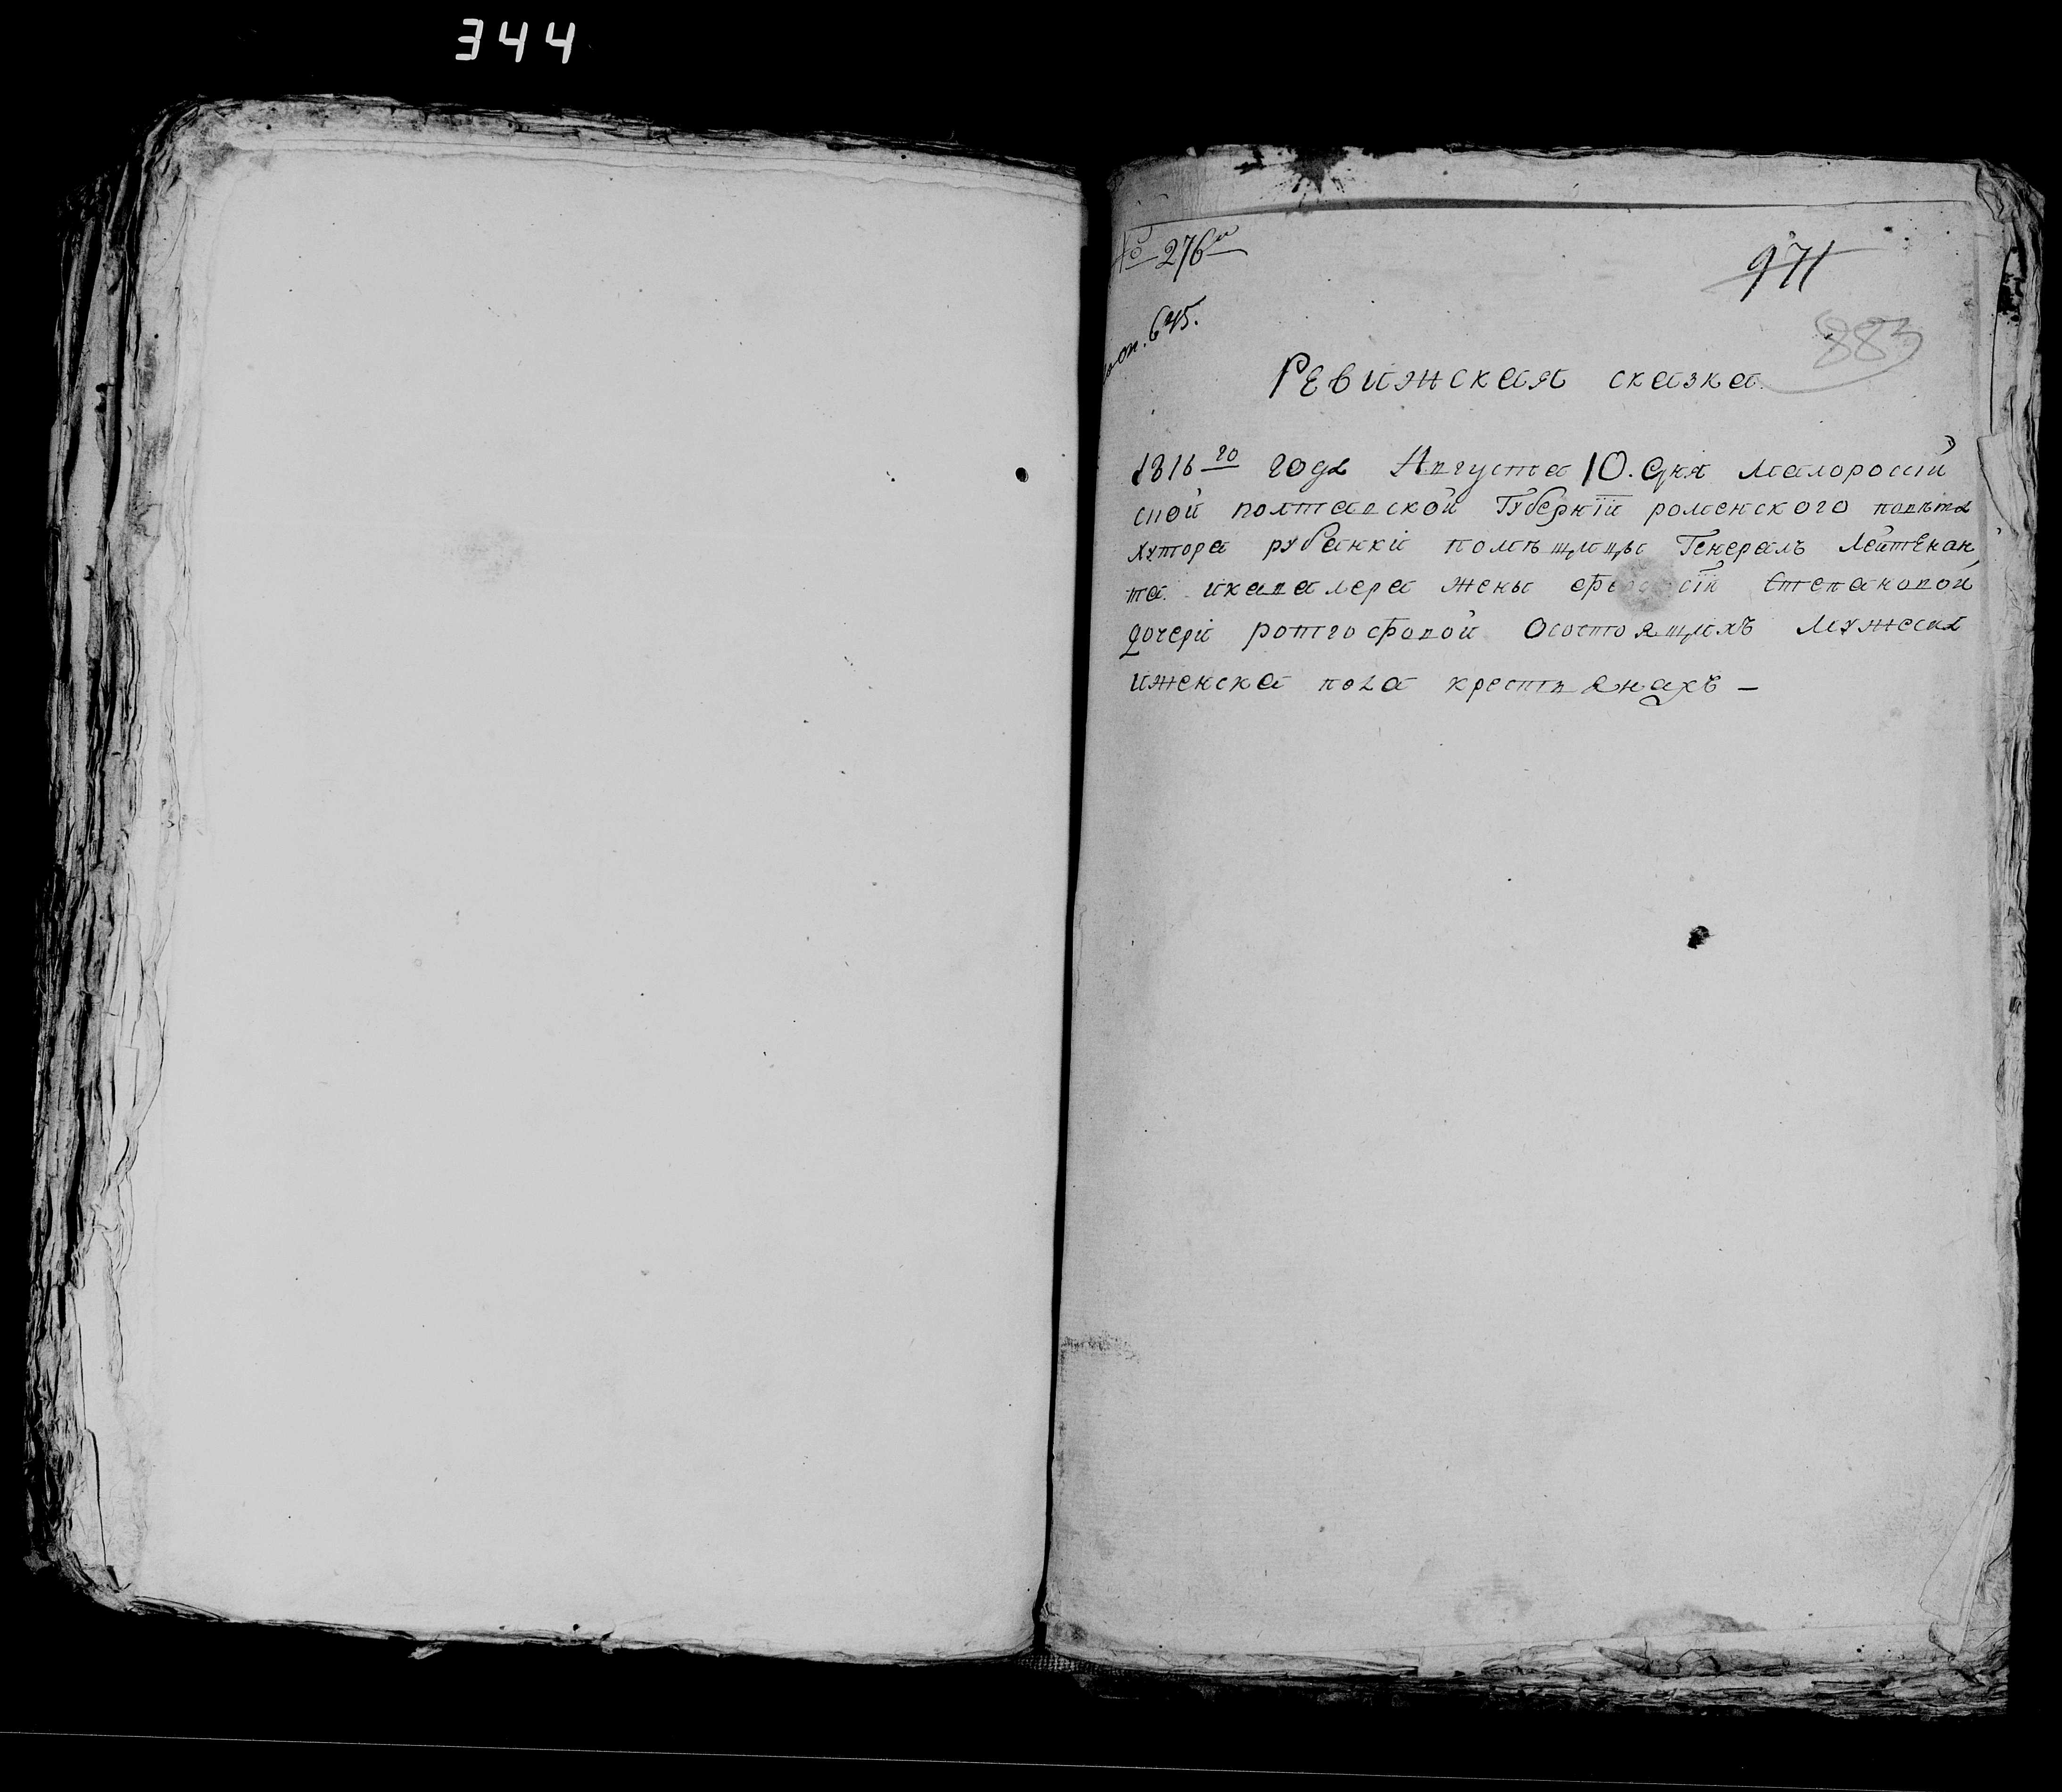 344
№ 276й
971
по оп. 645.
883
Ревижская сказка
1816го года Августа 10. дня Малоросій
ской полтавской Губерніи роменского повѣта
хутора рубанки помѣщицы Генералъ Лейтенан
та икавалера жены Степановой
дочери ротгофовой Осостоящихъ Мужеска
иженска пола крестьянахъ —